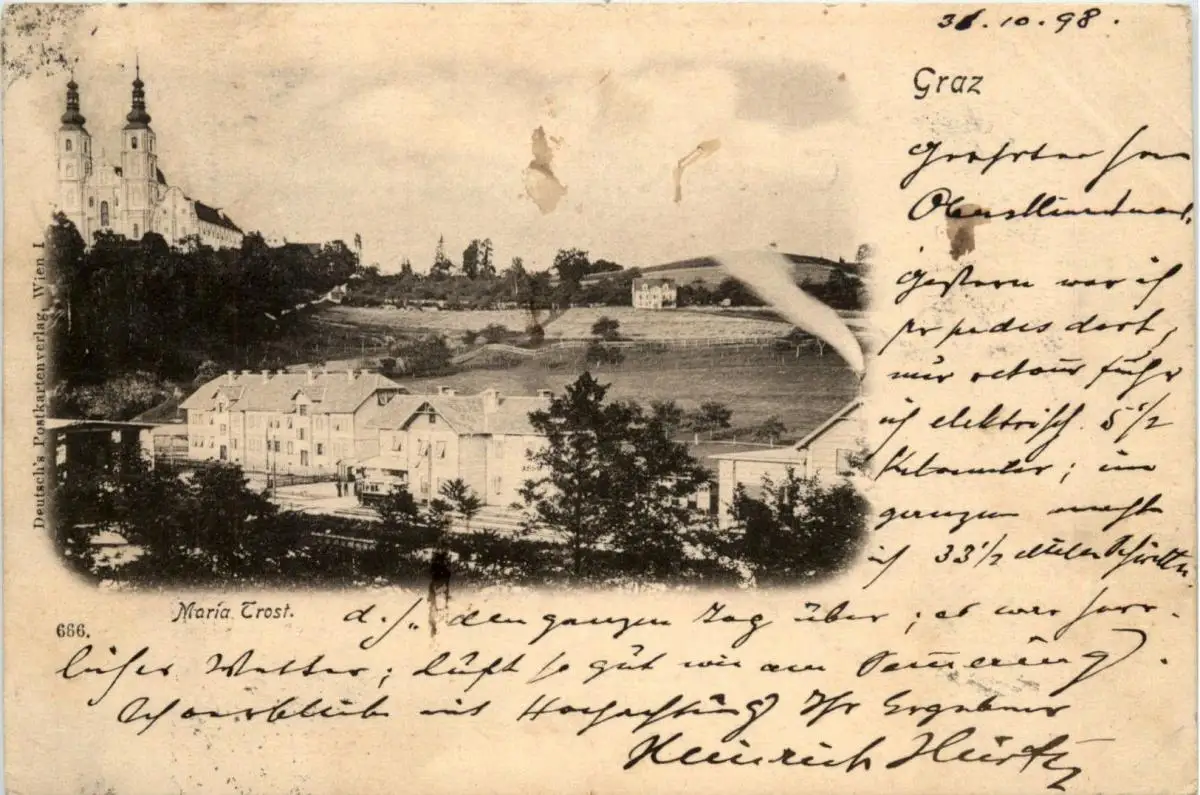 31.10.98.
Graz
Geehrter Herr
Gestern war ich
per pedes dort,
nur retour fuhr
ich elektrisch. 5 1/2
Kilometer; im
ganzen machte
ich 33 1/2 Schritte
d. h. den ganzen Tag über; es war herr-
liches Wetter; Luft so gut wie am Semmering.
mit Hochachtung Ihr Ergebener
Heinrich
Maria Trost.
666.
Deutsch's Postkartenverlag, Wien I